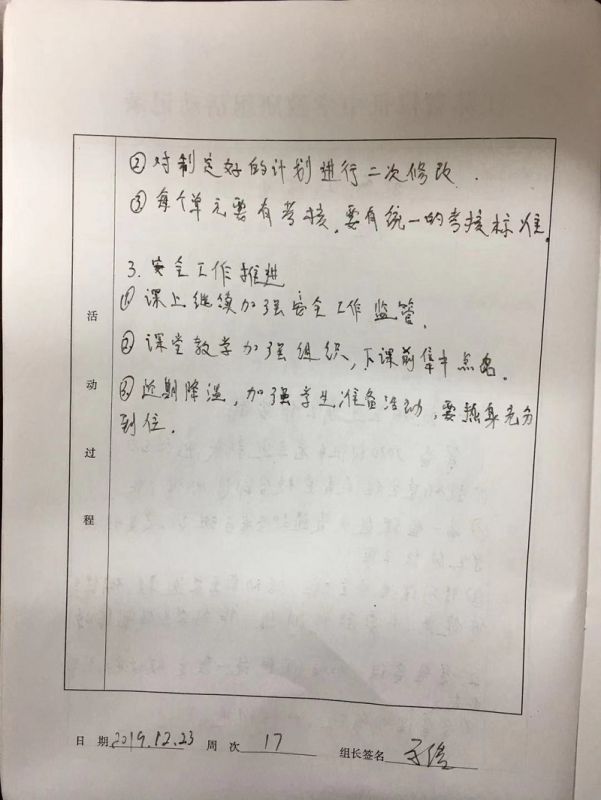 ②对制定好的计划进行二次修改.
③每个单元要有考核,要有统一的考核标准.
3.安全工作推进
①课上继续加强安全工作监管.
②课堂教学加强组织,下课前集中点名.
③近期降温,加强学生准备活动,要热身充分
到位.
活
动
过
程
日 期 2019.12.23 周 次 17 组长签名